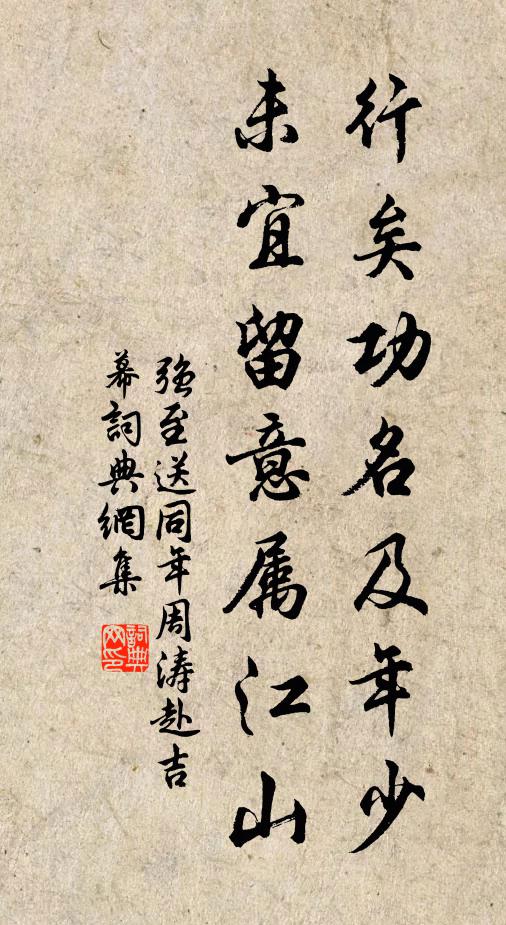 行矣功名及年少
未宜留意属江山
强至送同年周涛赴吉
幕詞典網集
詞典
网印